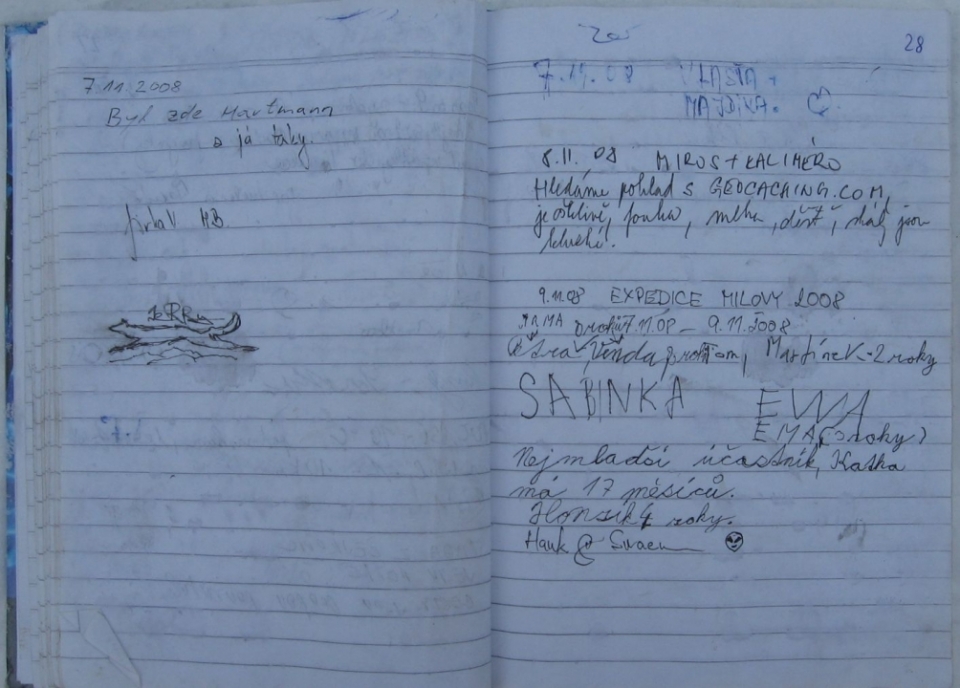 7.11.2008
Byl zde Hartmann
a já taky.
HB.
28
7.11.08 VLASTA +
MAJDIKA.
8.11.08 MIROS + KALIMÉRO
Hledáme poklad s GEOCACHING.COM,
je ošklivě, fouká, mlha, déšť, skály jsou
kluzké!
9.11.08 EXPEDICE MILOVY 2008
7.11.08 – 9.11.2008
Martínek - 2 roky
SABINKA EWA
EMA (3 roky)
Nejmladší účastník, Katka
má 17 měsíců.
Honzík 4 roky.
Hawk @